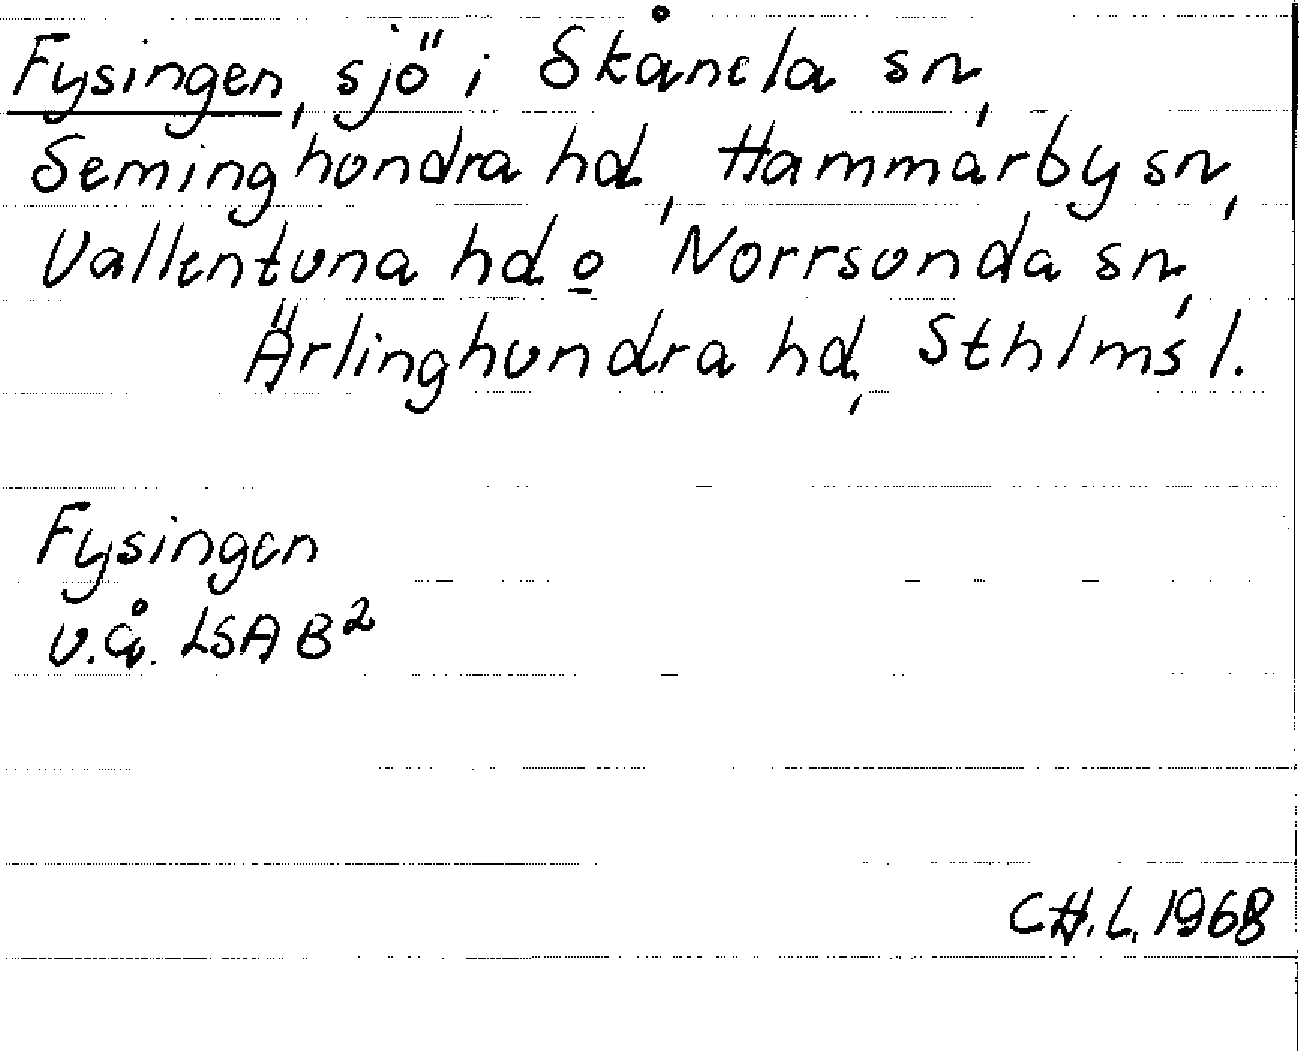 Fysingen, sjö i Skånela sn,
Seminghundra hd, Hammarby sn,
Vallentuna hd o Norrsunda sn,
Ärlinghundra hd, Sthlms l.
Fysingen
u.å. LSA B²
CH.L. 1968